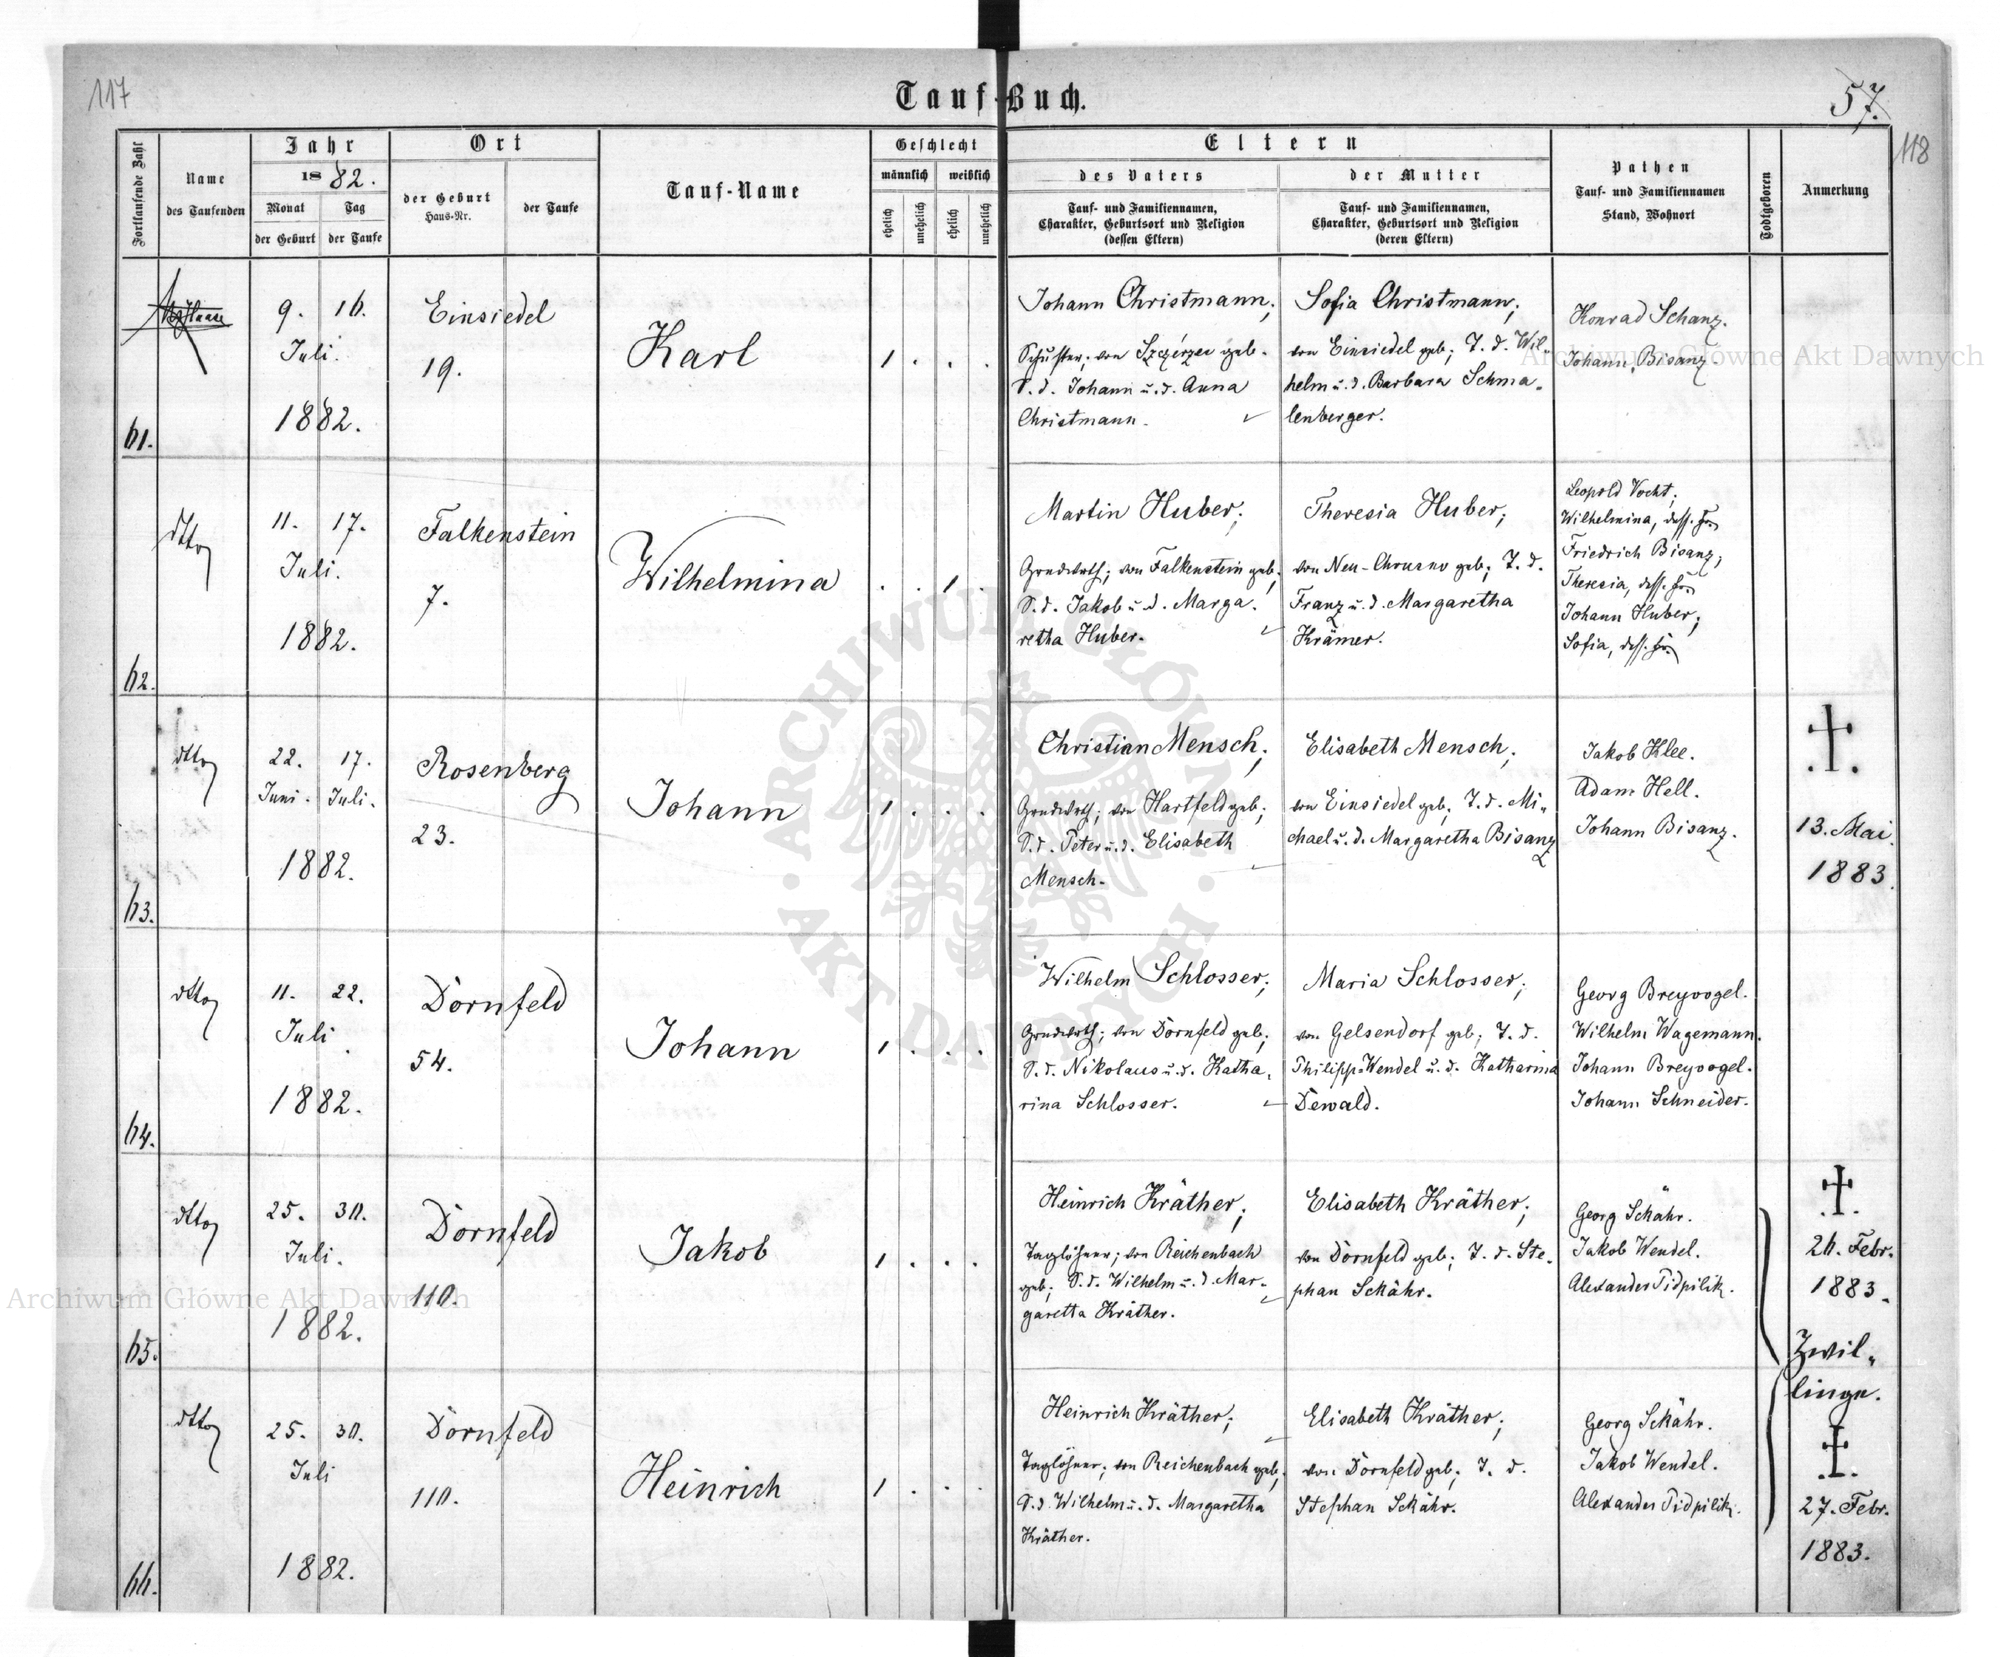 117
Tauf-Buch.
57.
118
Fortlaufende Zahl
Name
des Taufenden
Jahr
1882.
Monat
der Geburt
Tag
der Taufe
Ort
der Geburt
Haus-Nr.
der Taufe
Tauf-Name
Geschlecht
männlich
weiblich
ehelich
unehelich
ehelich
unehelich
Eltern
des Vaters
Tauf- und Familiennamen,
Charakter, Geburtsort und Religion
(dessen Eltern)
der Mutter
Tauf- und Familiennamen,
Charakter, Geburtsort und Religion
(deren Eltern)
Pathen
Tauf- und Familiennamen
Stand, Wohnort
Todtgeboren
Anmerkung
61.
9. 16.
Juli.
1882.
Einsiedel
19.
Karl
1 . . .
Johann Christmann;
Schuster; von Szczérzec geb.
S. d. Johann u. d. Anna
Christmann.
Sofia Christmann;
von Einsiedel geb; T. d. Wil-
helm u. d. Barbara Schma-
lenberger.
Konrad Schanz.
Johann Bisanz.
62.
dtto
11. 17.
Juli.
1882.
Falkenstein
7.
Wilhelmina
. . 1 .
Martin Huber;
Grndwrth; von Falkenstein geb;
S. d. Jakob u. d. Marga-
retha Huber.
Theresia Huber;
von Neu-Chrusno geb; T. d.
Franz u. d. Margaretha
Krämer.
Leopold Vocht;
Wilhelmina, dess. Fr.
Friedrich Bisanz;
Theresia, dess. Fr.
Johann Huber;
Sofia, dess. Fr.
63.
dtto
22. 17.
Juni. Juli.
1882.
Rosenberg
23.
Johann
1 . . .
Christian Mensch;
Grndwrth; von Hartfeld geb;
S. d. Peter u. d. Elisabeth
Mensch.
Elisabeth Mensch;
von Einsiedel geb; T. d. Mi-
chael u. d. Margaretha Bisanz
Jakob Klee.
Adam Hell.
Johann Bisanz.
13. Mai
1883.
64.
dtto
11. 22.
Juli
1882.
Dornfeld
54.
Johann
1 . . .
Wilhelm Schlosser;
Grndwrth; von Dornfeld geb;
S. d. Nikolaus u. d. Katha-
rina Schlosser.
Maria Schlosser;
von Gelsendorf geb; T. d.
Philipp Wendel u. d. Katharina
Dewald.
Georg Breyvogel.
Wilhelm Wagemann.
Johann Breyvogel.
Johann Schneider.
65.
dtto
25. 30.
Juli.
1882.
Dornfeld
110.
Jakob
1 . . .
Heinrich Kräther;
Taglöhner; von Reichenbach
geb; S. d. Wilhelm u. d. Mar-
garetta Kräther.
Elisabeth Kräther;
von Dornfeld geb; T. d. Ste-
phan Skähr.
Georg Skähr.
Jakob Wendel.
Alexander Pidpilik.
26. Febr.
1883.
Zwil-
linge.
66.
dtto
25. 30.
Juli
1882.
Dornfeld
110.
Heinrich
1 . . .
Heinrich Kräther;
Taglöhner; von Reichenbach geb;
S. d. Wilhelm u. d. Margaretha
Kräther.
Elisabeth Kräther;
von Dornfeld geb; T. d.
Stephan Skähr.
Georg Skähr.
Jakob Wendel.
Alexander Pidpilik.
27. Febr.
1883.
Archiwum Główne Akt Dawnych
Archiwum Główne Akt Dawnych
ARCHIWUM GŁÓWNE
AKT DAWNYCH